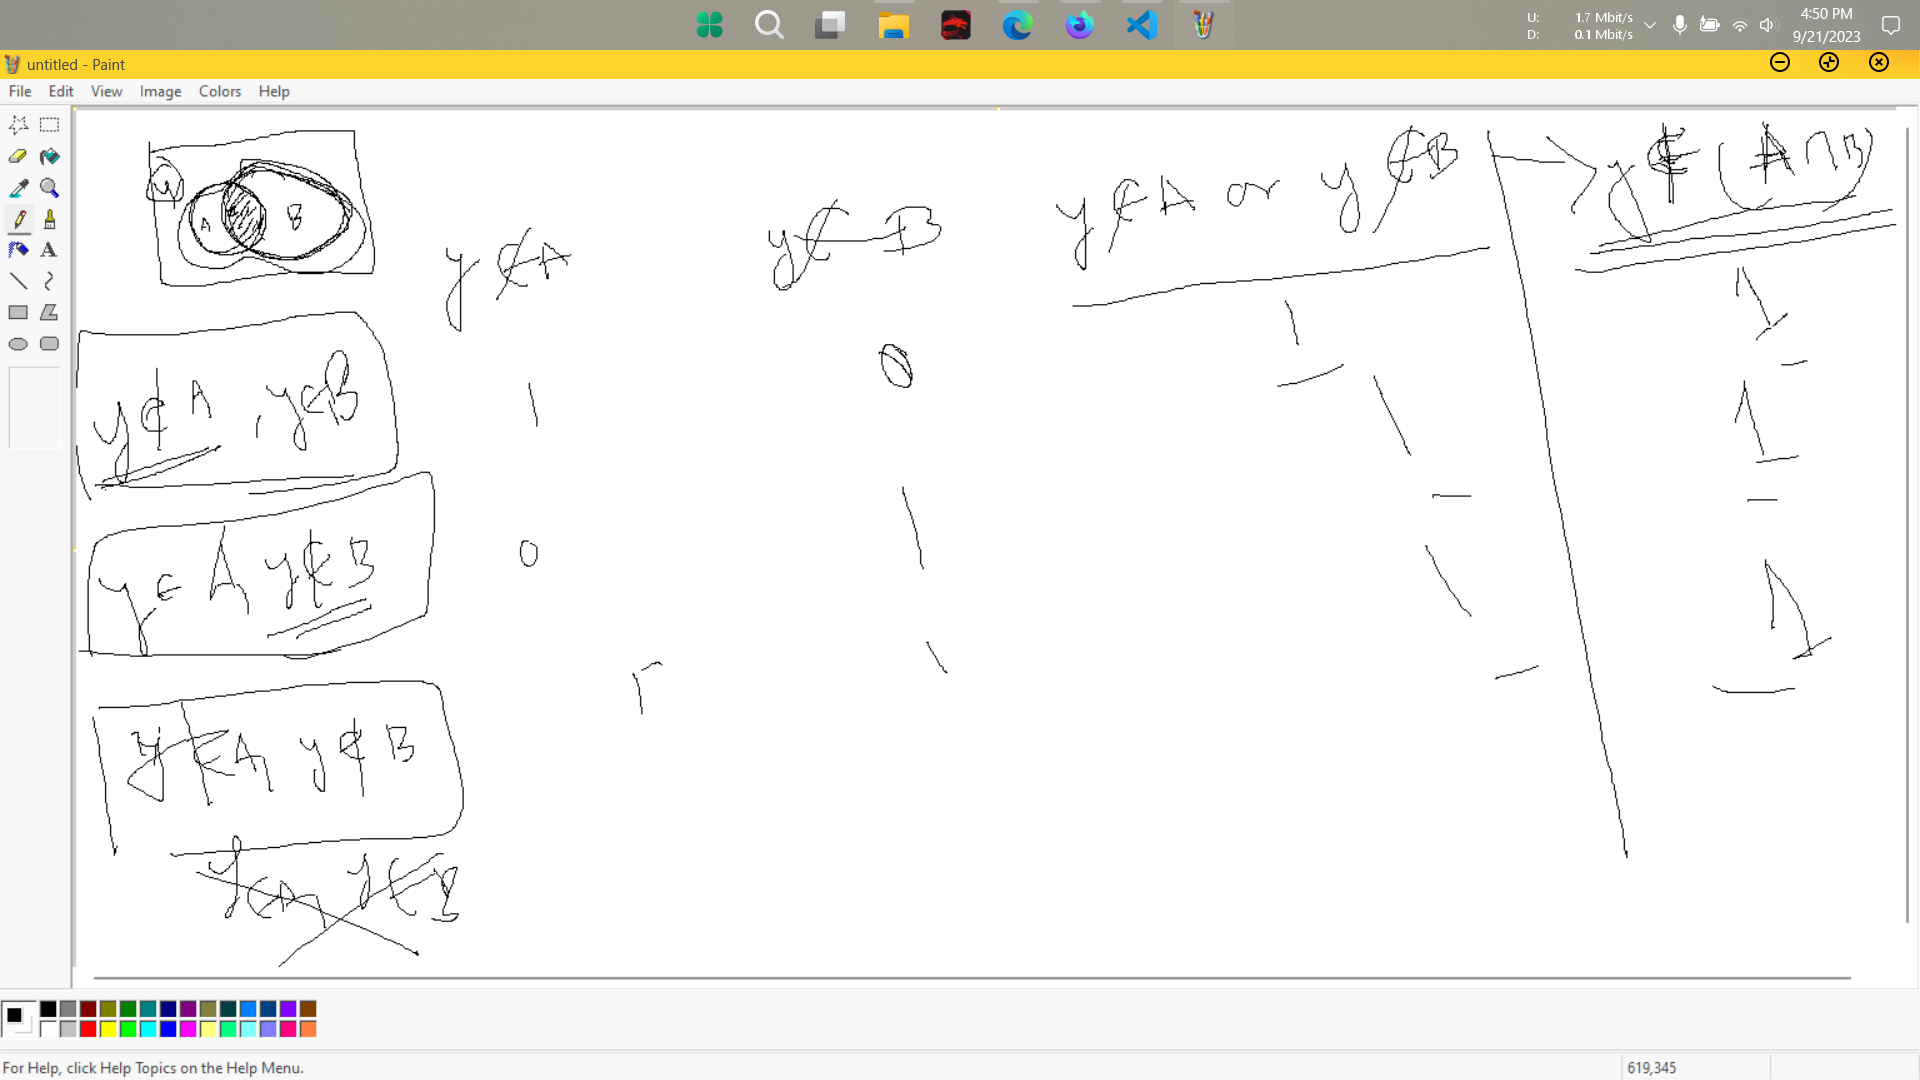 U: 1.7 Mbit/s
D: 0.1 Mbit/s
4:50 PM
9/21/2023
untitled - Paint
File Edit View Image Colors Help
U
A B
y∉A
y∉B
y∉A or y∉B
y∉(A∩B)
y∉A, y∈B
1
0
1
1
y∈A y∉B
0
1
1
1
y∉A y∉B
1
1
1
1
y∈A, y∈B
For Help, click Help Topics on the Help Menu.
619,345